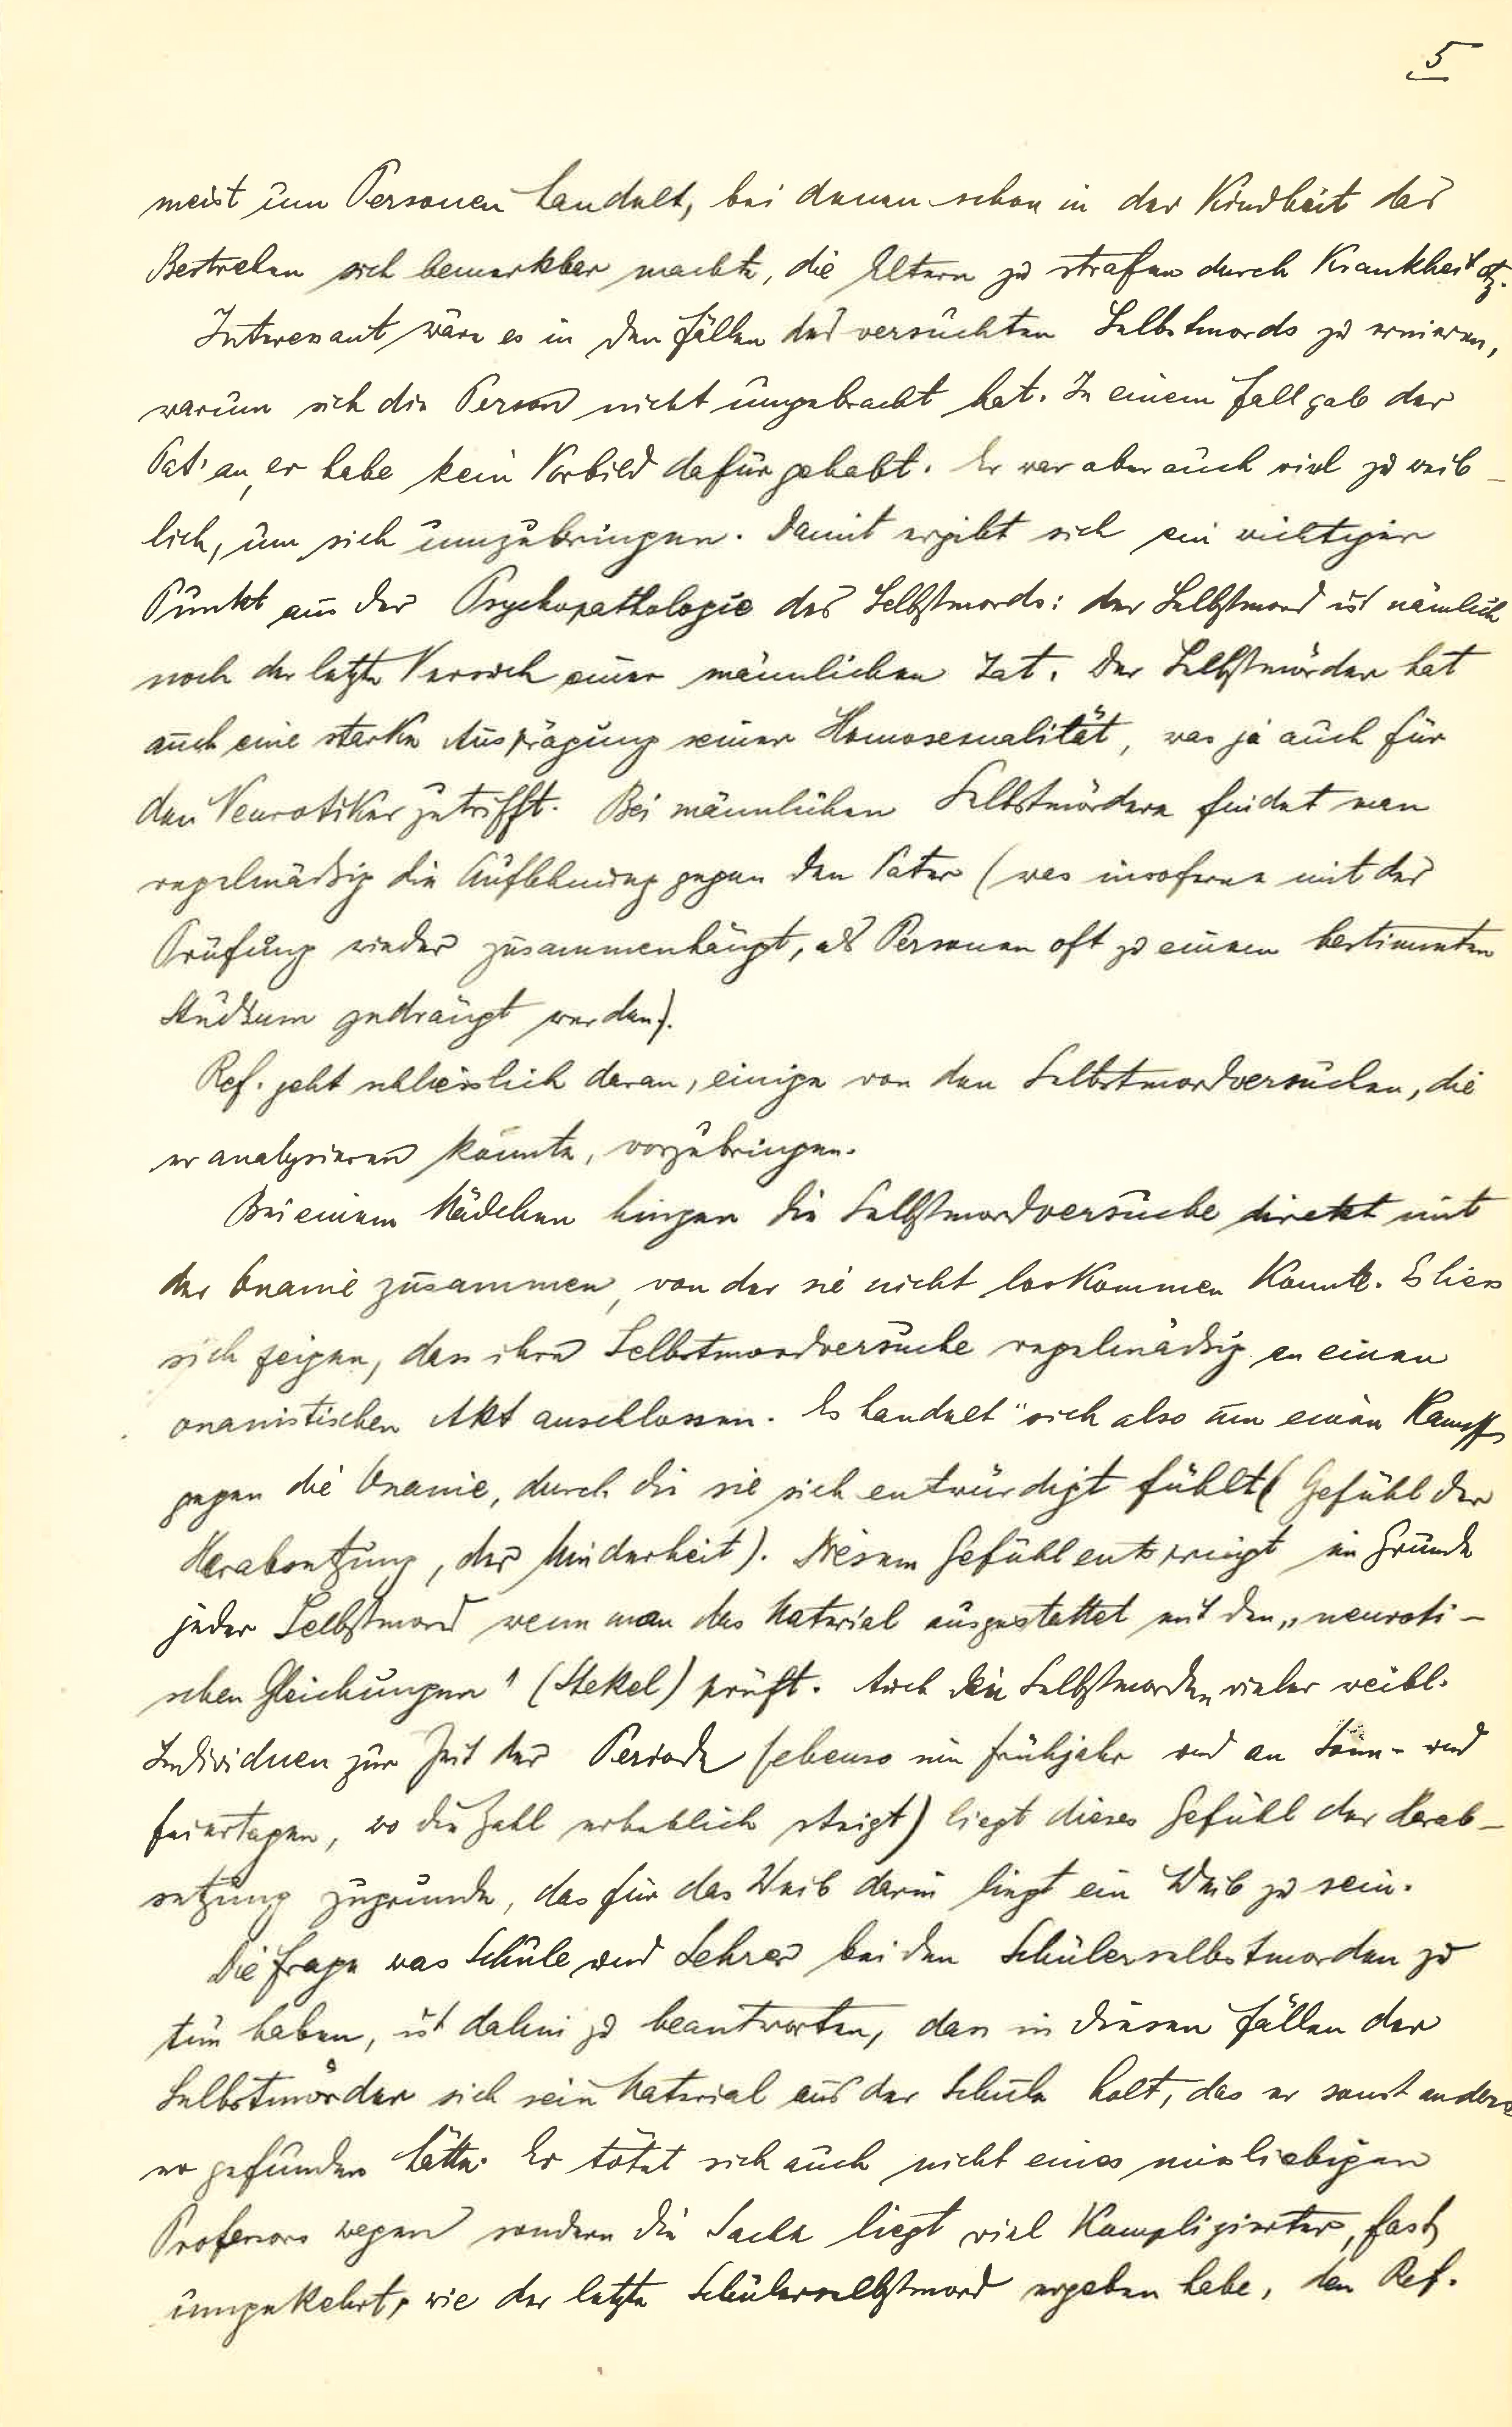 5
meist um Personen handelt, bei denen schon in der Kindheit das
Bestreben sich bemerkbar machte, die Eltern zu strafen durch Krankheit etz.
Interessant wäre es in den Fällen des versuchten Selbstmords zu eruieren,
warum sich die Person nicht umgebracht hat. In einem Fall gab der
Pat. an, er habe kein Vorbild dafür gehabt. Er war aber auch viel zu weib-
lich, um sich umzubringen. Damit ergibt sich ein wichtiger
Punkt aus der Psychopathologie des Selbstmords: der Selbstmord ist nämlich
noch der letzte Versuch einer männlichen Tat. Der Selbstmörder hat
auch eine starke Ausprägung seiner Homosexualität, was ja auch für
den Neurotiker zutrifft. Bei männlichen Selbstmördern findet man
regelmäßig die Auflehnung gegen den Vater (was insoferne mit der
Prüfung wieder zusammenhängt, als Personen oft zu einem bestimmten
Studium gedrängt werden).
Ref. geht schliesslich daran, einige von den Selbstmordversuchen, die
er analysieren konnte, vorzubringen.
Bei einem Mädchen hingen die Selbstmordversuche direkt mit
der Onanie zusammen, von der sie nicht loskommen konnte. Es liess
sich zeigen, dass ihre Selbstmordversuche regelmäßig an einen
onanistischen Akt anschlossen. Es handelt sich also um einen Kampf
gegen die Onanie, durch die sie sich entwürdigt fühlt (Gefühl der
Herabsetzung, der Minderheit). Diesem Gefühl entspringt im Grunde
jeder Selbstmord wenn man das Material ausgestattet mit den „neuroti-
schen Gleichungen" (Stekel) prüft. Auch den Selbstmorden vieler weibl.
Individuen zur Zeit der Periode (ebenso im Frühjahr und an Sonn- und
Feiertagen, wo die Zahl erheblich steigt) liegt dieses Gefühl der Herab-
setzung zugrunde, das für das Weib darin liegt ein Weib zu sein.
Die Frage was Schule und Lehrer bei den Schülerselbstmorden zu
tun haben, ist dahin zu beantworten, dass in diesen Fällen der
Selbstmörder sich sein Material aus der Schule holt, das er sonst anders
wo gefunden hätte. Er tötet sich auch nicht eines missliebigen
Professors wegen sondern die Sache liegt viel komplizierter, fast
umgekehrt, wie der letzte Schülerselbstmord ergeben habe, den Ref.